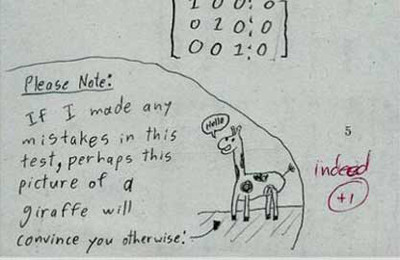 1 0 0 0
0 1 0 0
0 0 1 0
Please Note:
If I made any
mistakes in this
test, perhaps this
picture of a
giraffe will
convince you otherwise:
Hello
5
indeed
+1